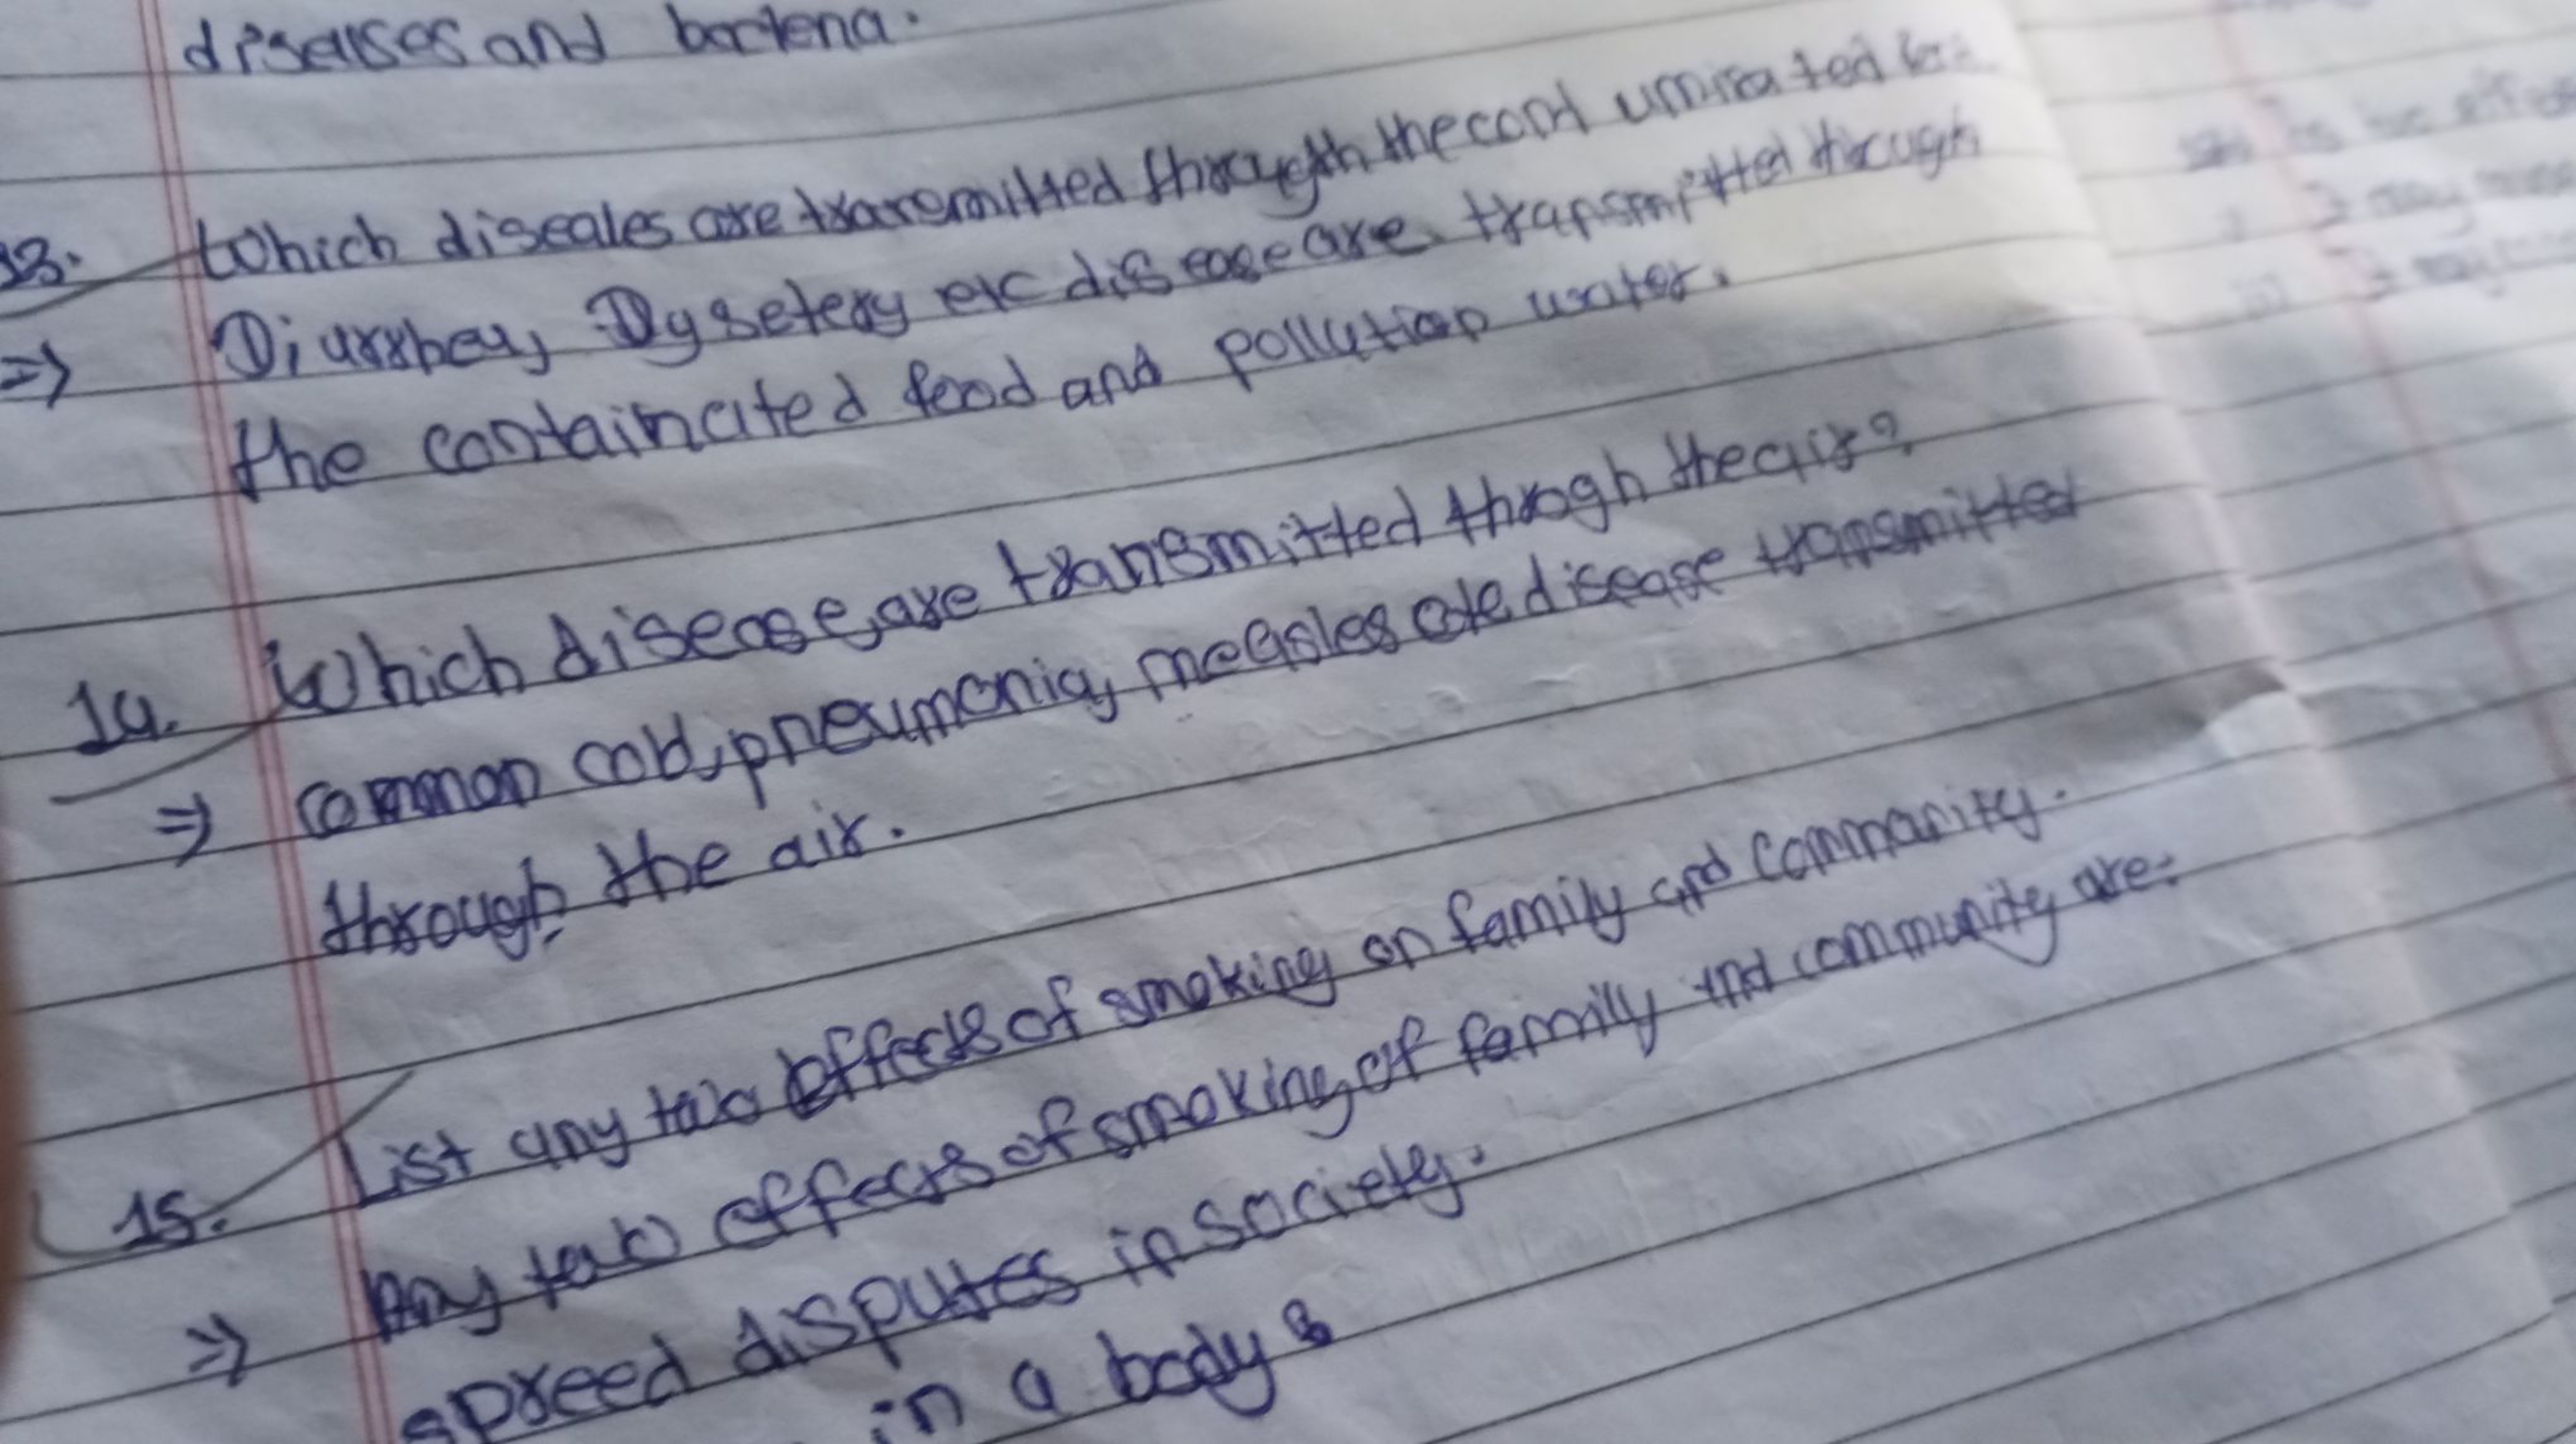 diseases and bactena.
13. Which diseales are transmitted through the cont
=> Diarrhea, Dysetery etc disease are transmitted through
the containcated food and pollution water.
14. Which disease, are transmitted throgh the air?
=> common cold, pneumonia, measles are disease transmitted
through the air.
15. List any two effects of smoking on family and commanity.
=> Any two effects of smoking of family and community are:
spreed disputes in society.
in a body